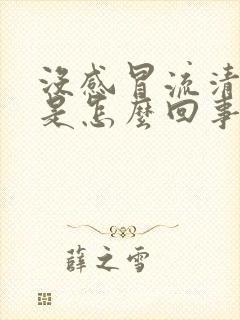 沒感冒流清
是怎麼回事
薛之雪